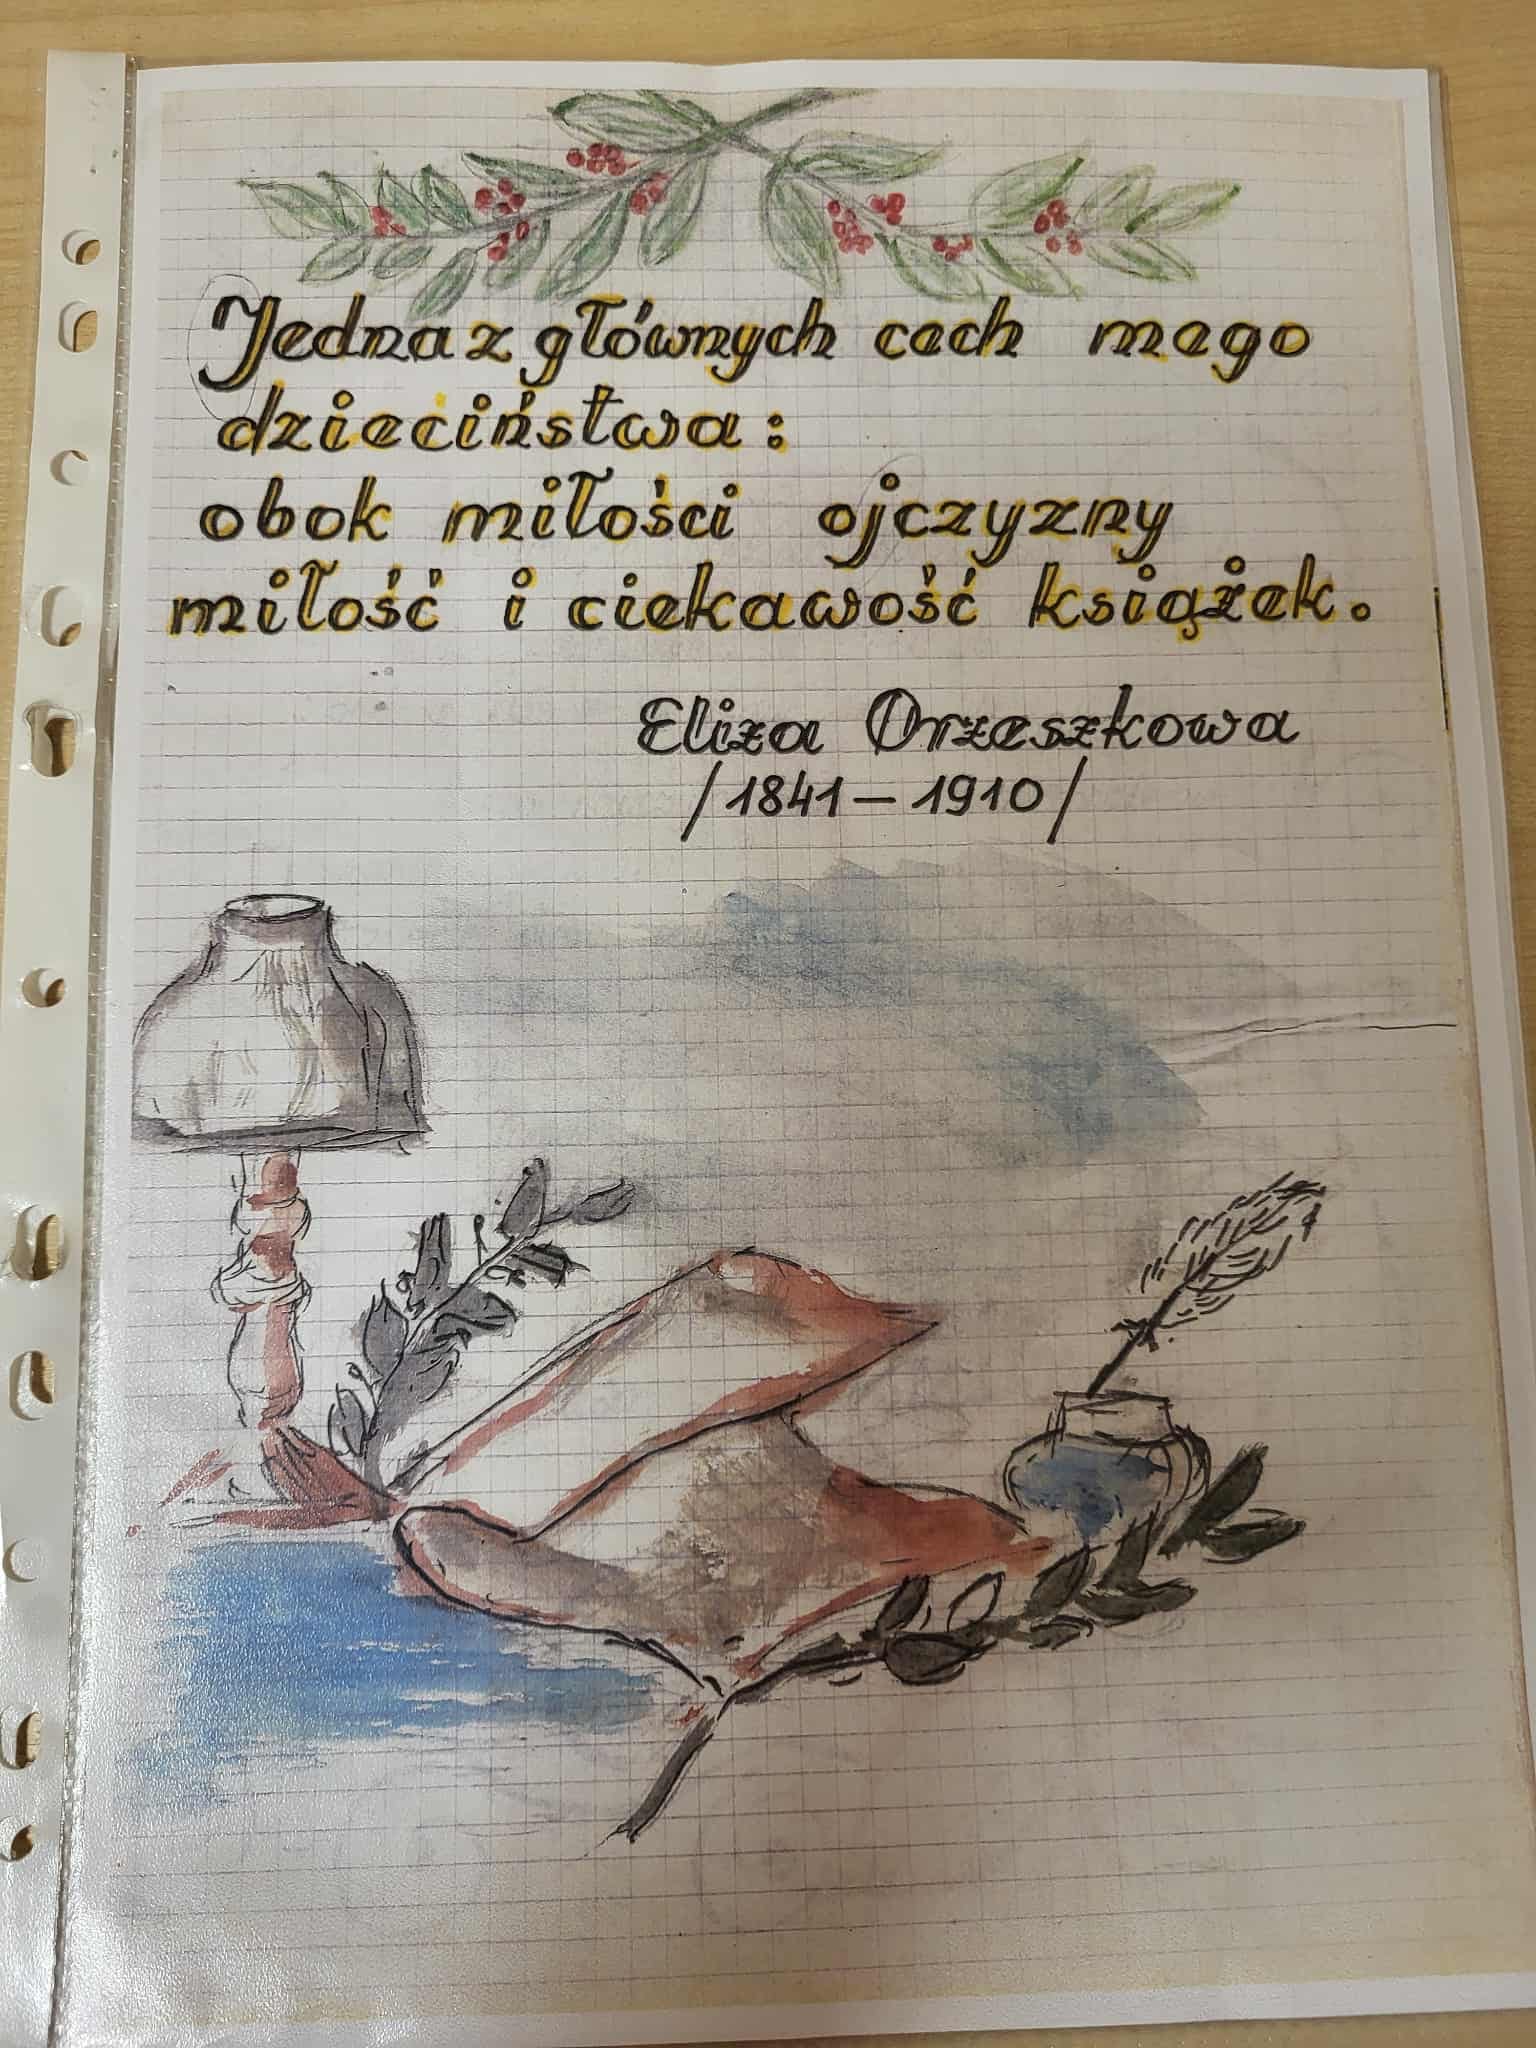 Jedna z głównych cech mego
dzieciństwa:
obok miłości ojczyzny
miłość i ciekawość książek.
Eliza Orzeszkowa
/1841 – 1910/